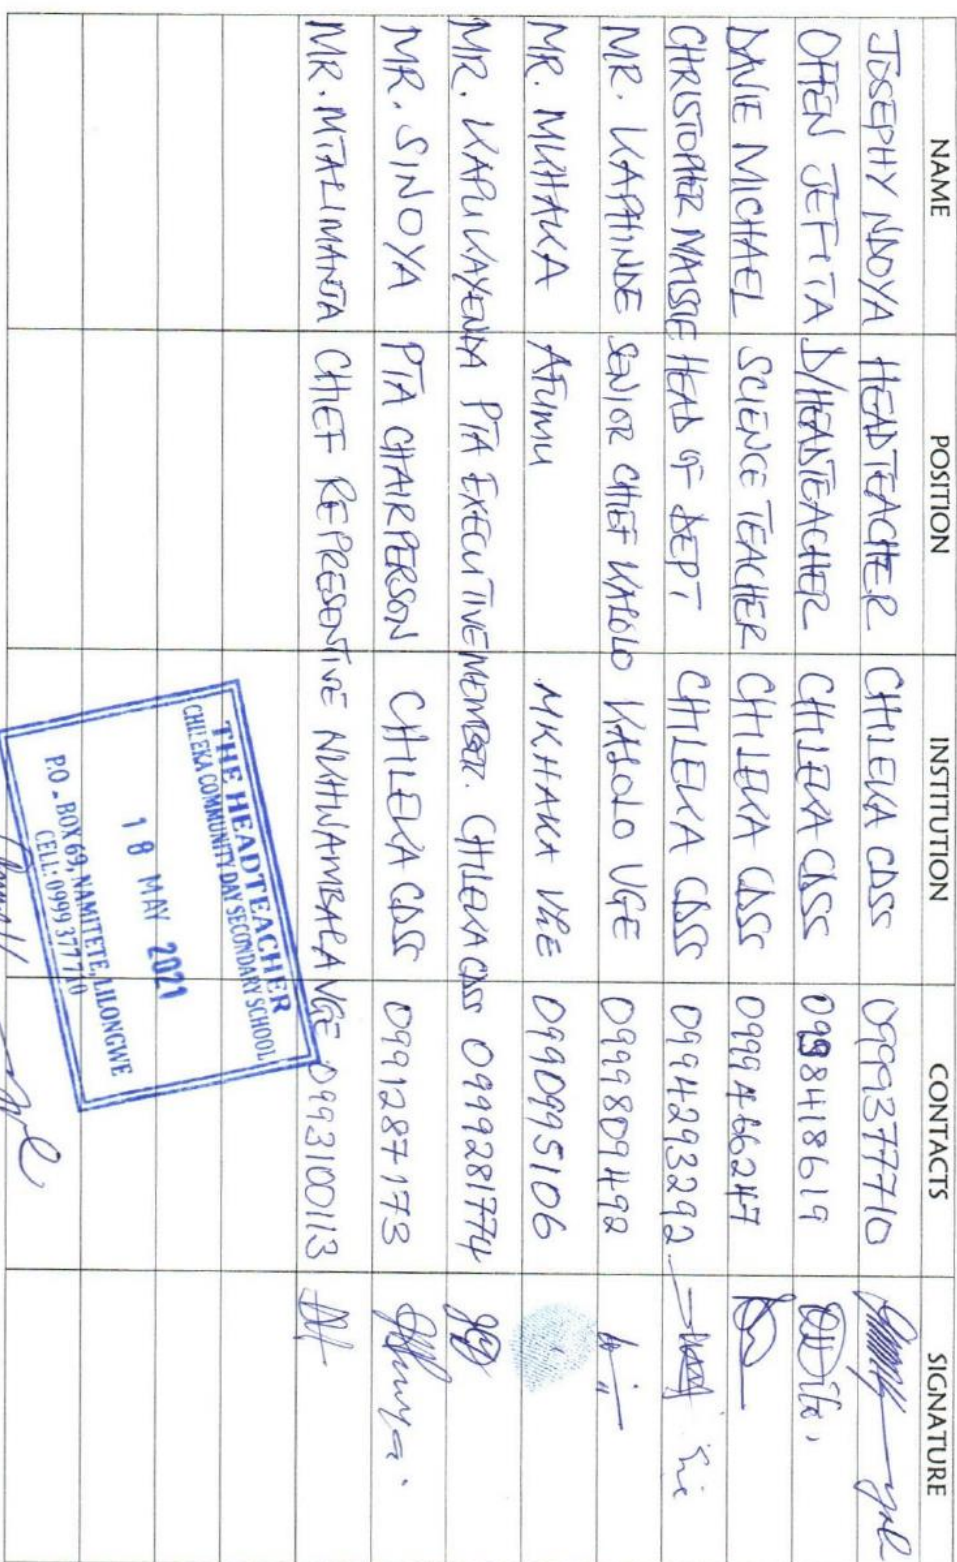 NAME POSITION INSTITUTION CONTACTS SIGNATURE
JOSEPHY NDOYA HEADTEACHER CHILEKA CDSS 0999377710
OFFEN JEFITA D/HEADTEACHER CHILEKA CDSS 0998418619
DAVIE MICHAEL SCIENCE TEACHER CHILEKA CDSS 0999466247
CHRISTOPHER MASSIE HEAD OF DEPT CHILEKA CDSS 0994293292
MR. KAPHINDE SENIOR CHIEF KALOLO KALOLO VGE 0999809492
MR. MKHAKA AFUMU MKHAKA VGE 0990995106
MR. KAPUKAYENDA PTA EXECUTIVE MEMBER. CHILEKA CDSS 0999281774
MR. SINOYA PTA CHAIRPERSON CHILEKA CDSS 0991287173
MR. MTALIMANJA CHIEF REPRESENTIVE NKHWAMBALA VGE 0993100113
THE HEADTEACHER
CHILEKA COMMUNITY DAY SECONDARY SCHOOL
18 MAY 2021
P.O - BOX 69, NAMITETE, LILONGWE
CELL: 0999 377710